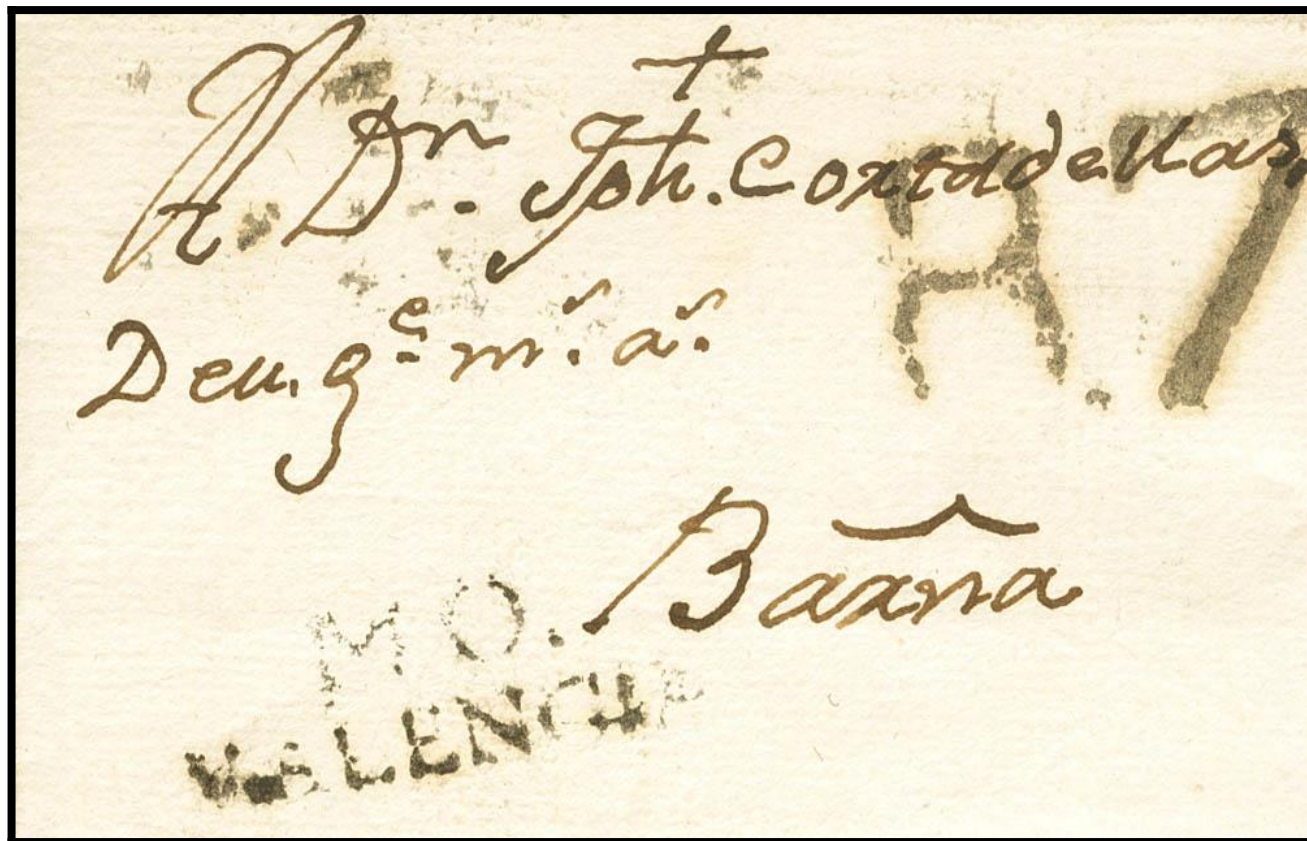 A Dn. Jph. Cortadellas
R.7
Deu. ge. ms. as.
Barna
MO.
VALENCIA